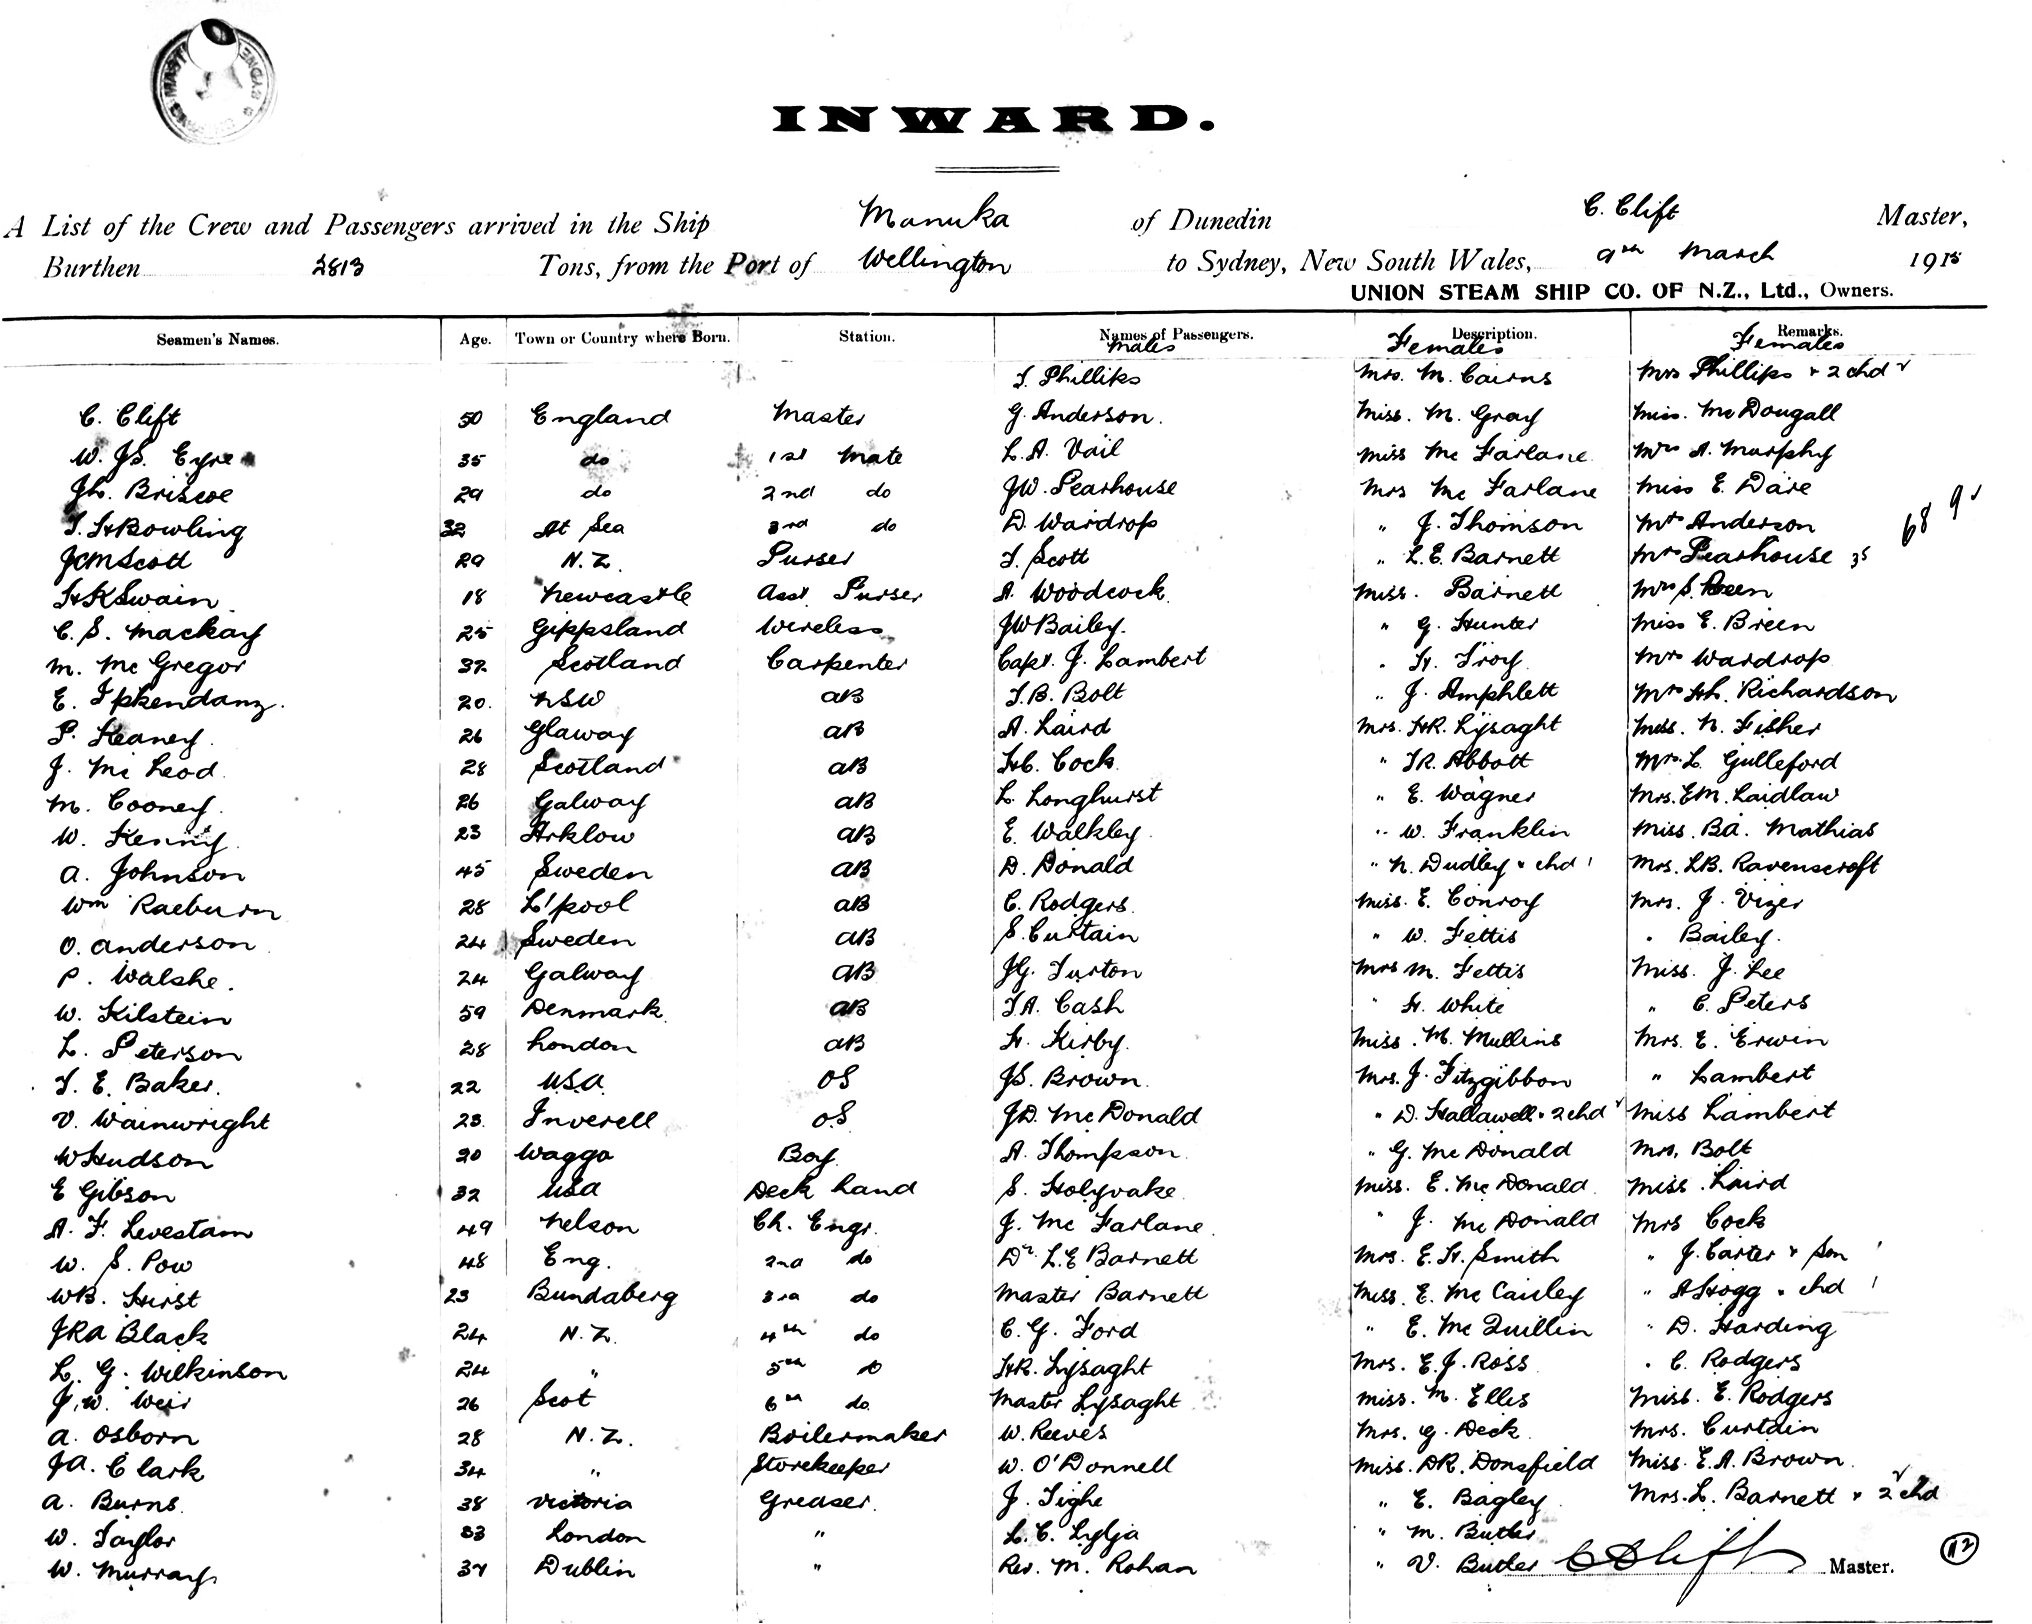 INWARD.
A List of the Crew and Passengers arrived in the Ship Manuka of Dunedin C. Clift Master,
Burthen 2813 Tons, from the Port of Wellington to Sydney, New South Wales, 9th March 1915
UNION STEAM SHIP CO. OF N.Z., Ltd., Owners.
Seamen's Names. Age. Town or Country where Born. Station. Names of Passengers. Description. Remarks.
Males Females Females
T. Phillips Mrs. M. Cairns Mrs Phillips + 2 chd
C. Clift 50 England Master G. Anderson. Miss. M. Gray Miss. McDougall
W. JS. Eyre 35 do 1st Mate L.A. Vail Miss McFarlane Mrs A. Murphy
JL. Briscoe 29 do 2nd do JW. Pearhouse Mrs McFarlane Miss E. Dare
T. H Bowling 32 At Sea 3rd do D. Wardrop " J. Thomson Mrs Anderson 68 9
JCM Scott 29 N.Z. Purser T. Scott " L.E. Barnett Mrs Pearhouse
HK Swain 18 Newcastle Asst Purser A. Woodcock Miss. Barnett Mrs S. Breen
C. S. Mackay 25 Gippsland Wireless JW Bailey. " G. Hunter Miss E. Breen
M. McGregor 32 Scotland Carpenter Capt. J. Lambert " H. Troy Mrs Wardrop
E. Ipkendanz. 20. NSW AB T.B. Bolt " J. Amphlett Mrs HL. Richardson
P. Keaney. 26 Glaway AB A. Laird Mrs. HR. Lysaght Miss. N. Fisher
J. McLeod 28 Scotland AB HC. Cock " TR. Abbott Mrs. L. Gulleford
M. Cooney. 26 Galway AB L. Longhurst " E. Wagner Mrs. EM. Laidlaw
W. Kenny. 23 Arklow AB E. Walkley. " W. Franklin Miss. BA. Mathias
A. Johnson 45 Sweden AB D. Donald " N. Dudley + chd 1 Mrs. LB. Ravenscroft
Wm Raeburn 28 L'pool AB C. Rodgers. Miss. E. Conroy Mrs. J. Vizer
O. Anderson 24 Sweden AB S. Curtain " W. Fettis " Bailey.
P. Walshe. 24 Galway AB JG. Turton Mrs M. Fettis Miss. J. Lee
W. Kilstein 59 Denmark AB TA. Cash " H. White " C. Peters
L. Peterson 28 London AB H. Kirby. Miss. M. Mullins Mrs. E. Erwin
T. E. Baker. 22 USA OS JS. Brown. Mrs. J. Fitzgibbon " Lambert
V. Wainwright 23. Inverell OS JD. McDonald " D. Hallawell + 2 chd Miss Lambert
W Hudson 20 Wagga Boy A. Thompson " G. McDonald Mrs. Bolt
E Gibson 32 USA Deck hand S. Holyoake Miss. E. McDonald Miss. Laird
A. F. Levestam 49 Nelson Ch. Engr. J. McFarlane " J. McDonald Mrs Cock
W. S. Pow 48 Eng. 2nd do Dr. L.E Barnett Mrs. E. H. Smith " J. Carter + Son 1
WB. Hirst 23 Bundaberg 3rd do Master Barnett Miss. E. McCauley " A Hogg + chd 1
JRA Black 24 N.Z. 4th do C. G. Ford " E. McQuillin " D. Harding
L. G. Wilkinson 24 " 5th do HR. Lysaght Mrs. E. J. Ross " C. Rodgers
J. W. Weir 26 Scot 6th do. Master Lysaght Miss. M. Ellis Miss. E. Rodgers
A. Osborn 28 N.Z. Boilermaker W. Reeves Mrs. G. Deck Mrs. Curtain
JA. Clark 34 " Storekeeper W. O'Donnell Miss. DR. Donsfield Miss. E. A. Brown
A. Burns. 38 Victoria Greaser. J. Tighe " E. Bagley. Mrs. L. Barnett + 2 chd
W. Taylor 33 London " L. C. Lylja " M. Butler
W. Murray. 37 Dublin " Rev. M. Rohan " V. Butler C Clift Master.